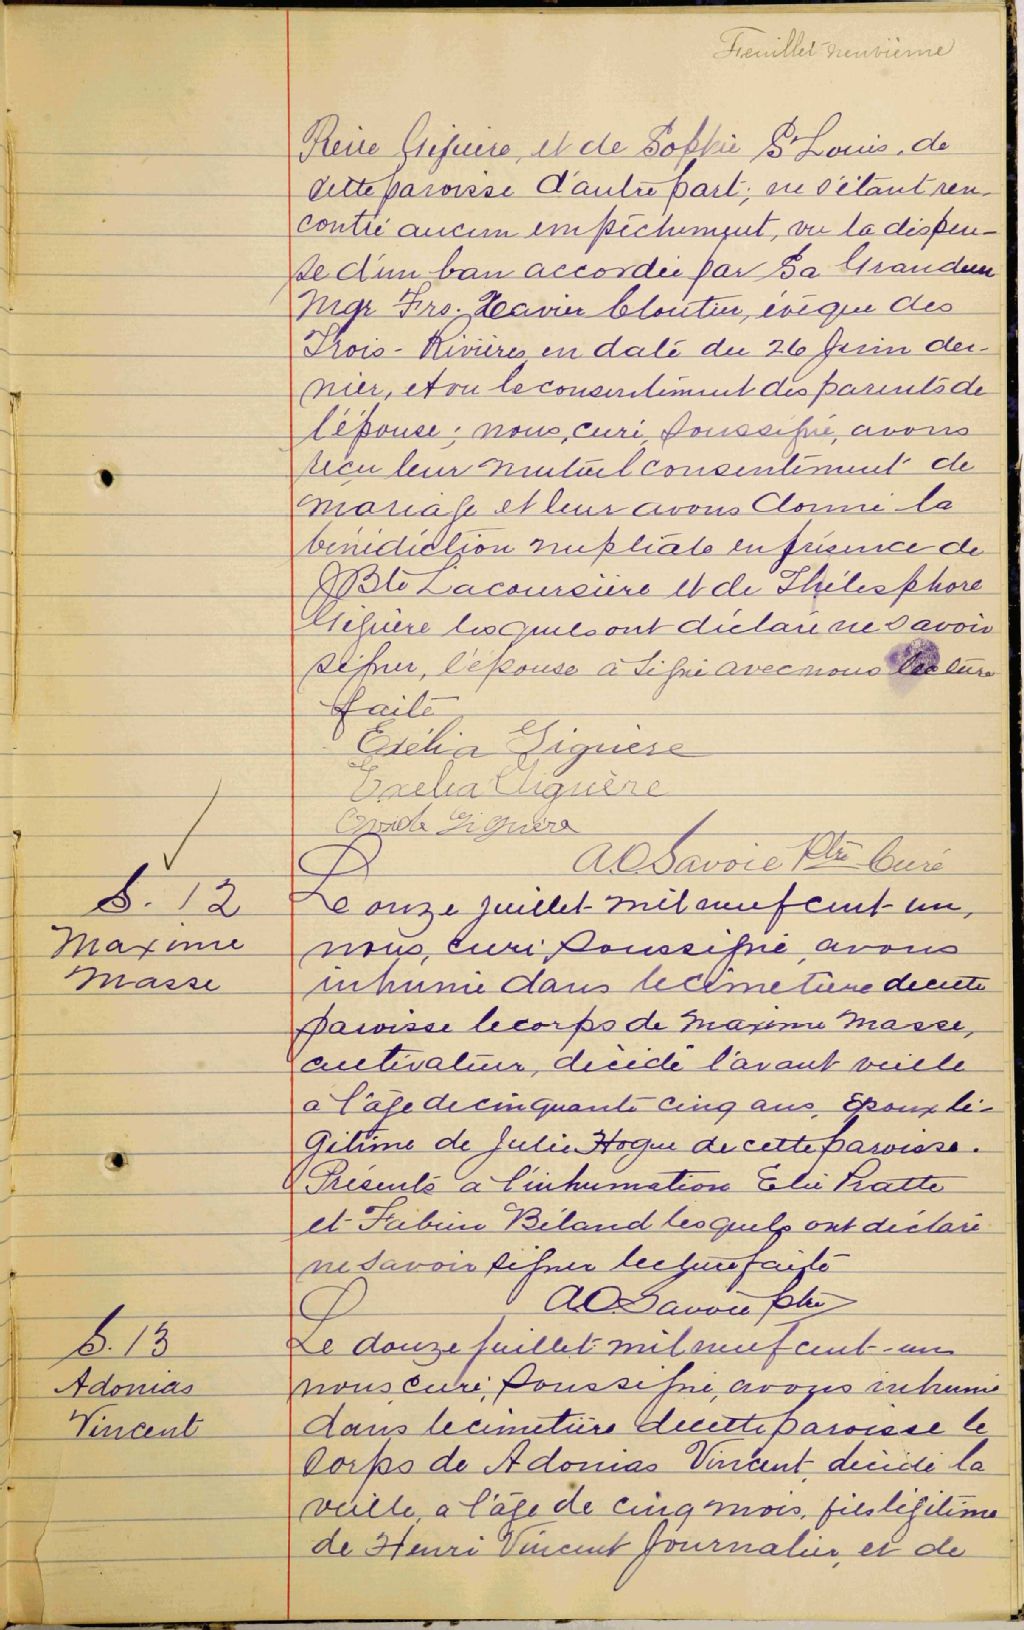 Feuillet neuvième
Giguère, et de Sophie St Louis, de
cette paroisse d'autre part; ne s'étant ren-
contré aucun empêchement, vu la dispen-
se d'un ban accordée par Sa Grandeur
Mgr Frs. Xavier Cloutier, évêque des
Trois-Rivières en date du 26 Juin der-
nier, et vu le consentement des parents de
l'épouse; nous, curé, soussigné, avons
reçu leur mutuel consentement de
mariage et leur avons donné la
bénédiction nuptiale en présence de
JBte Lacoursière et de Thélesphore
Giguère lesquels ont déclaré ne savoir
signer, l'épouse a signé avec nous lecture
faite
Exélia Giguère
Exelia Giguère
Ovide Giguère
A.O. Savoie Ptre Curé
S. 12
Maxime
Masse
Le onze juillet mil neuf cent un,
nous, curé soussigné, avons
inhumé dans le cimetière de cette
paroisse le corps de Maxime Masse,
cultivateur, décédé l'avant veille
a l'âge de cinquante cinq ans, Epoux lé-
gitime de Julie Hogue de cette paroisse.
Présents a l'inhumation Elie Pratte
et Fabien Béland lesquels ont déclaré
ne savoir signer lecture faite
A.O. Savoie ptre
S. 13
Adonias
Vincent
Le douze juillet mil neuf cent-un
nous curé, soussigné, avons inhumé
dans le cimetière de cette paroisse le
corps de Adonias Vincent, décédé la
veille, a l'âge de cinq mois, fils légitime
de Henri Vincent Journalier, et de